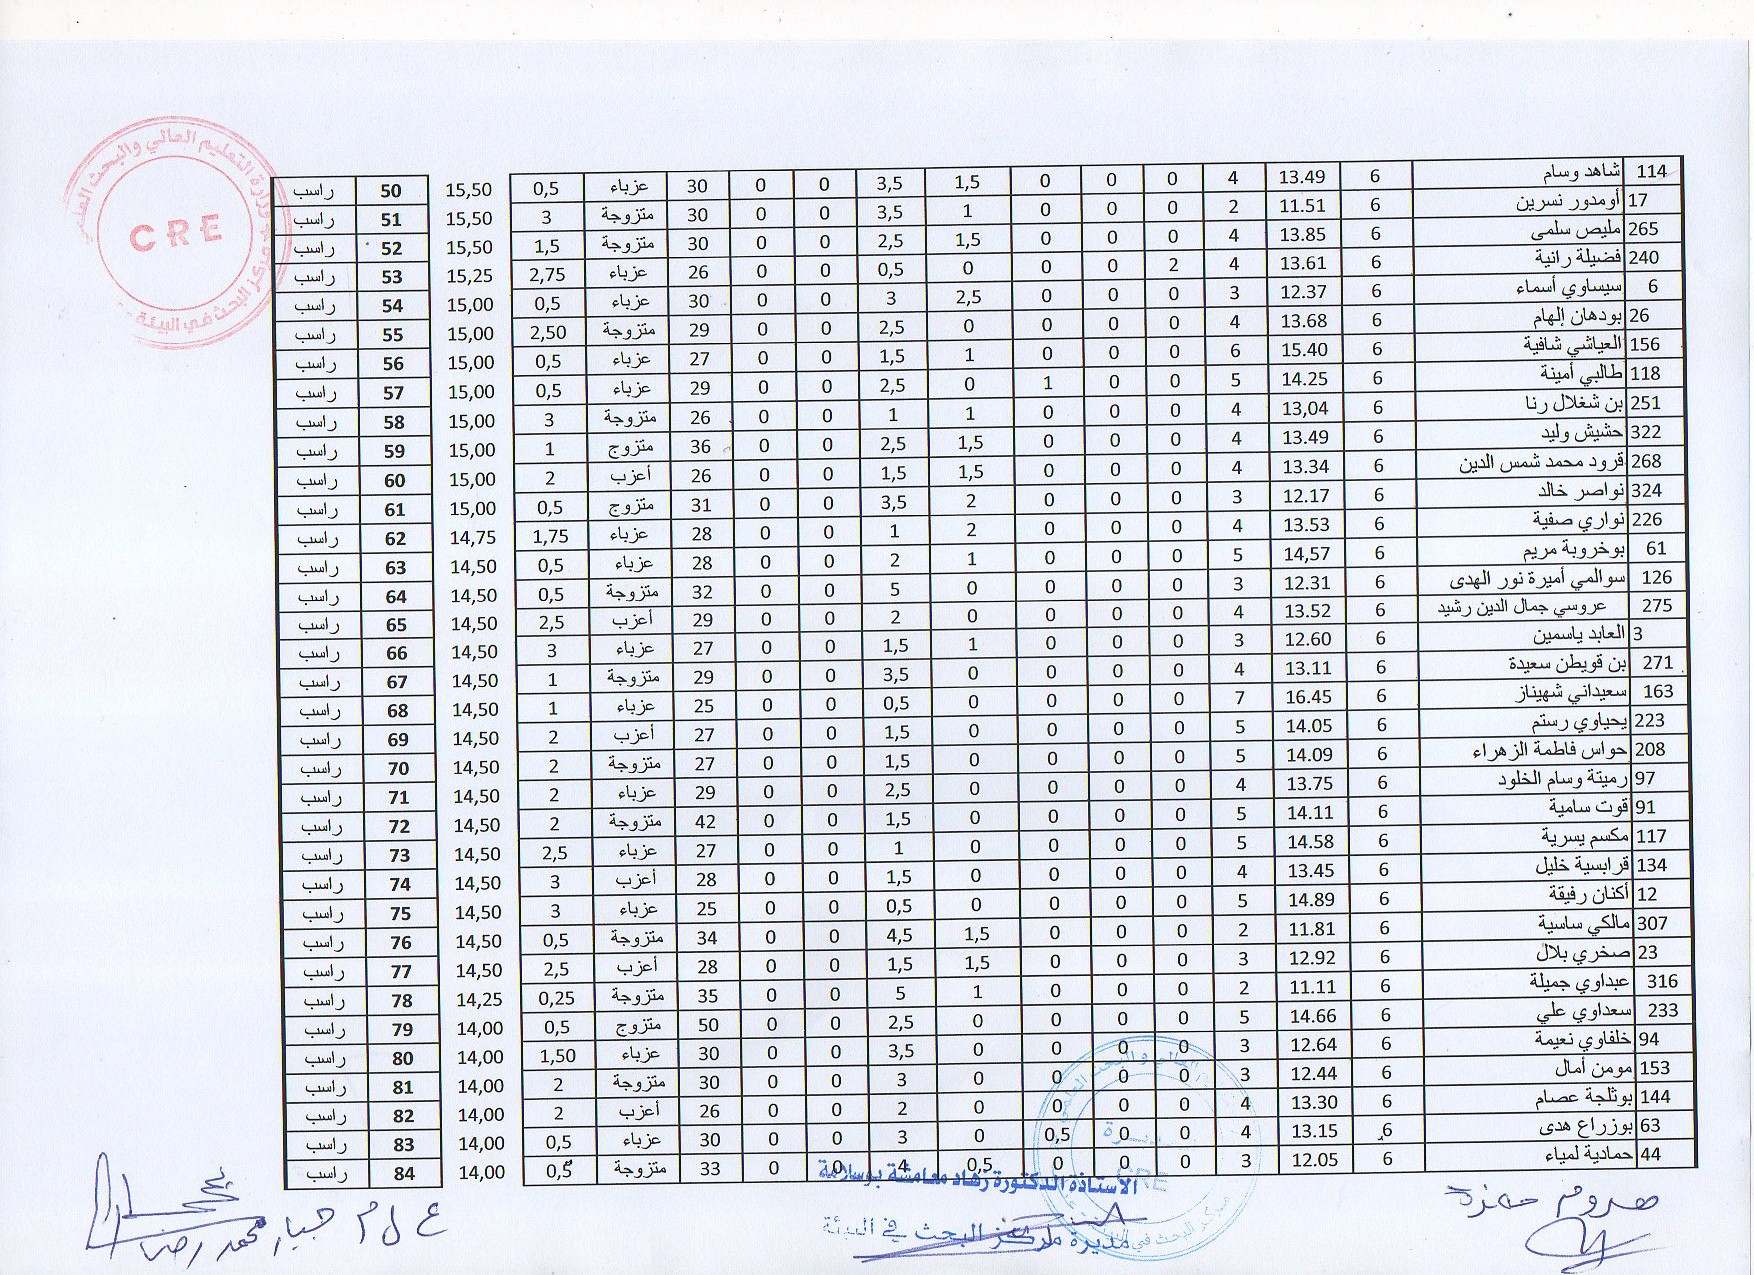 وزارة التعليم العالي والبحث العلمي
مركز البحث في البيئة
CRE
114 شاهد وسام 6 13.49 4 0 0 0 1,5 3,5 0 0 30 عزباء 0,5 15,50 50 راسب
17 أومدور نسرين 6 11.51 2 0 0 0 1 3,5 0 0 30 متزوجة 3 15,50 51 راسب
265 مليص سلمى 6 13.85 4 0 0 0 1,5 2,5 0 0 30 متزوجة 1,5 15,50 52 راسب
240 فضيلة رانية 6 13.61 4 2 0 0 0 0,5 0 0 26 عزباء 2,75 15,25 53 راسب
6 سيساوي أسماء 6 12.37 3 0 0 0 2,5 3 0 0 30 عزباء 0,5 15,00 54 راسب
26 بودهان إلهام 6 13.68 4 0 0 0 0 2,5 0 0 29 متزوجة 2,50 15,00 55 راسب
156 العياشي شافية 6 15.40 6 0 0 0 1 1,5 0 0 27 عزباء 0,5 15,00 56 راسب
118 طالبي أمينة 6 14.25 5 0 0 1 0 2,5 0 0 29 عزباء 0,5 15,00 57 راسب
251 بن شغلال رنا 6 13,04 4 0 0 0 1 1 0 0 26 متزوجة 3 15,00 58 راسب
322 حشيش وليد 6 13.49 4 0 0 0 1,5 2,5 0 0 36 متزوج 1 15,00 59 راسب
268 قرود محمد شمس الدين 6 13.34 4 0 0 0 1,5 1,5 0 0 26 أعزب 2 15,00 60 راسب
324 نواصر خالد 6 12.17 3 0 0 0 2 3,5 0 0 31 متزوج 0,5 15,00 61 راسب
226 نواري صفية 6 13.53 4 0 0 0 2 1 0 0 28 عزباء 1,75 14,75 62 راسب
61 بوخروبة مريم 6 14,57 5 0 0 0 1 2 0 0 28 عزباء 0,5 14,50 63 راسب
126 سوالمي أميرة نور الهدى 6 12.31 3 0 0 0 0 5 0 0 32 متزوجة 0,5 14,50 64 راسب
275 عروسي جمال الدين رشيد 6 13.52 4 0 0 0 0 2 0 0 29 أعزب 2,5 14,50 65 راسب
3 العابد ياسمين 6 12.60 3 0 0 0 1 1,5 0 0 27 عزباء 3 14,50 66 راسب
271 بن قويطن سعيدة 6 13.11 4 0 0 0 0 3,5 0 0 29 متزوجة 1 14,50 67 راسب
163 سعيداني شهيناز 6 16.45 7 0 0 0 0 0,5 0 0 25 عزباء 1 14,50 68 راسب
223 يحياوي رستم 6 14.05 5 0 0 0 0 1,5 0 0 27 أعزب 2 14,50 69 راسب
208 حواس فاطمة الزهراء 6 14.09 5 0 0 0 0 1,5 0 0 27 متزوجة 2 14,50 70 راسب
97 رميتة وسام الخلود 6 13.75 4 0 0 0 0 2,5 0 0 29 عزباء 2 14,50 71 راسب
91 قوت سامية 6 14.11 5 0 0 0 0 1,5 0 0 42 متزوجة 2 14,50 72 راسب
117 مكسم يسرية 6 14.58 5 0 0 0 0 1 0 0 27 عزباء 2,5 14,50 73 راسب
134 قرابسية خليل 6 13.45 4 0 0 0 0 1,5 0 0 28 أعزب 3 14,50 74 راسب
12 أكنان رفيقة 6 14.89 5 0 0 0 0 0,5 0 0 25 عزباء 3 14,50 75 راسب
307 مالكي ساسية 6 11.81 2 0 0 0 1,5 4,5 0 0 34 متزوجة 0,5 14,50 76 راسب
23 صخري بلال 6 12.92 3 0 0 0 1,5 1,5 0 0 28 أعزب 2,5 14,50 77 راسب
316 عبداوي جميلة 6 11.11 2 0 0 0 1 5 0 0 35 متزوجة 0,25 14,25 78 راسب
233 سعداوي علي 6 14.66 5 0 0 0 0 2,5 0 0 50 متزوج 0,5 14,00 79 راسب
94 خلفاوي نعيمة 6 12.64 3 0 0 0 0 3,5 0 0 30 عزباء 1,50 14,00 80 راسب
153 مومن أمال 6 12.44 3 0 0 0 0 3 0 0 30 متزوجة 2 14,00 81 راسب
144 بوثلجة عصام 6 13.30 4 0 0 0 0 2 0 0 26 أعزب 2 14,00 82 راسب
63 بوزراع هدى 6 13.15 4 0 0 0,5 0 3 0 0 30 عزباء 0,5 14,00 83 راسب
44 حمادية لمياء 6 12.05 3 0 0 0 0,5 4 0 0 33 متزوجة 0,5 14,00 84 راسب
الأستاذة الدكتورة رهاد معامشة بوسلامة
مديرة مركز البحث في البيئة
CRE
هدوم حمزة
محمد رضا